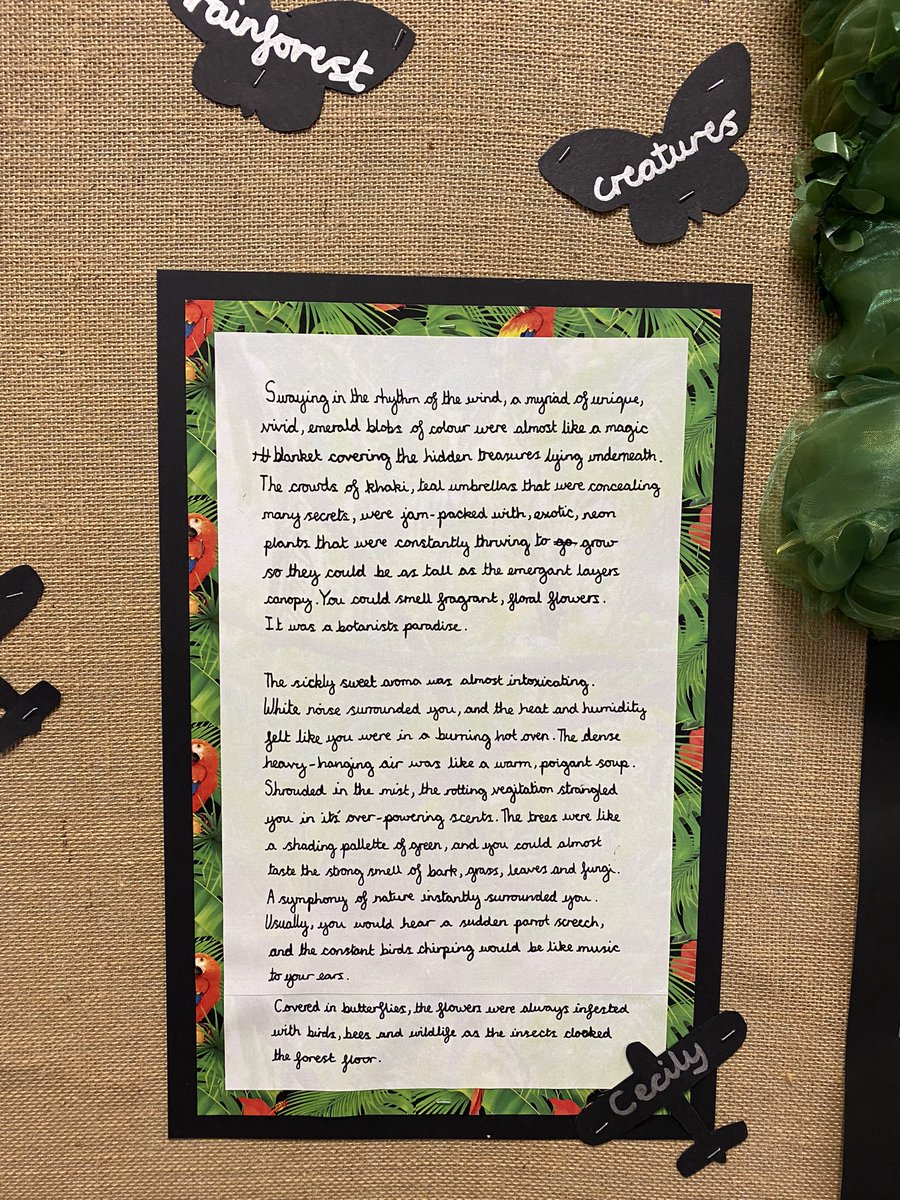 rainforest
creatures
Swaying in the rhythm of the wind, a myriad of unique,
vivid, emerald blobs of colour were almost like a magic
blanket covering the hidden treasures lying underneath.
The crowds of khaki, teal umbrellas that were concealing
many secrets, were jam-packed with, exotic, neon
plants that were constantly thriving to go grow
so they could be as tall as the emergant layers
canopy. You could smell fragrant, floral flowers.
It was a botanists paradise.
The sickly sweet aroma was almost intoxicating.
White noise surrounded you, and the heat and humidity
felt like you were in a burning hot oven. The dense
heavy-hanging air was like a warm, poigant soup.
Shrouded in the mist, the rotting vegitation strangled
you in its' over-powering scents. The trees were like
a shading pallette of green, and you could almost
taste the strong smell of bark, grass, leaves and fungi.
A symphony of nature instantly surrounded you.
Usually, you would hear a sudden parrot screech,
and the constant birds chirping would be like music
to your ears.
Covered in butterflies, the flowers were always infested
with birds, bees and wildlife as the insects clocked
the forest floor.
Cecily